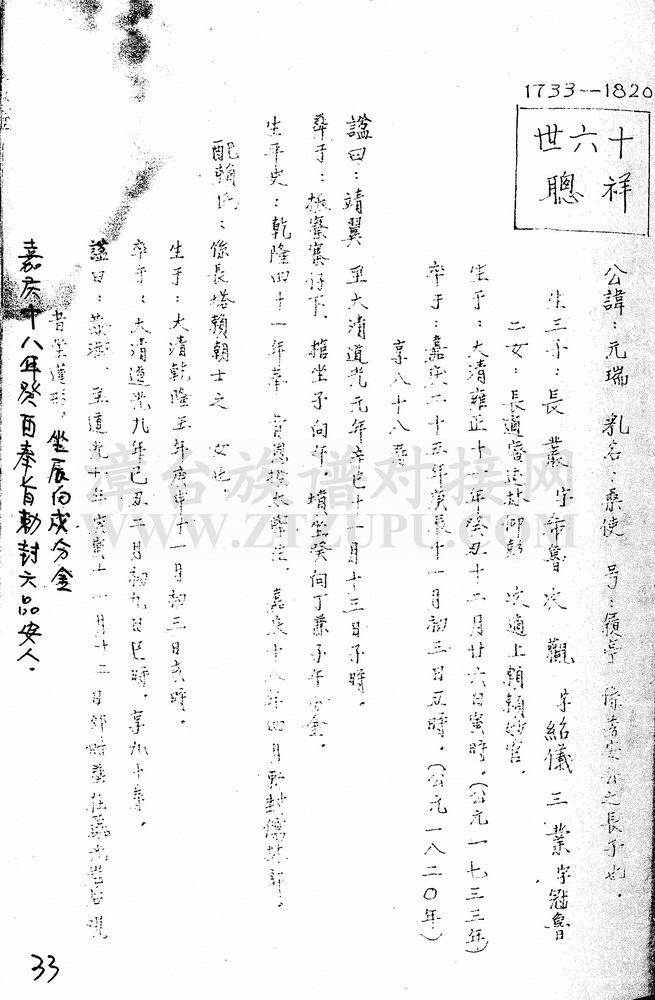 1733--1820
十六世
祥聰
公諱：元瑞 乳名： 使 号： 亭 係 公之長子也．
生三子：長 叢 字希魯 次 觀 字紹儀 三 業 字冠魯
二女：長適 次適上賴賴妙官．
生于：大清雍正十一年癸丑十二月廿六日寅時．（公元一七三三年）
卒于：嘉庆二十五年庚辰十一月初三日丑時．（公元一八二〇年）
享八十八壽
諡曰：靖翼 至大清道光元年辛巳十一月十三日子時．
葬于： 寨仔下．棺坐子向午．墳坐癸向丁兼子午分金．
生平史：乾隆四十一年奉 太學生．嘉庆十八年四月 封儒林郎．
配賴氏：係長塔賴朝士之 女也．
生于：大清乾隆五年庚申十一月初三日亥時．
卒于：大清道光九年己丑二月初九日巳時．享九十壽．
諡曰： 至道光十年庚寅十一月十二日卯時葬在
形．坐辰向戌分金
嘉庆十八年癸酉奉旨勅封六品安人．
33
漳台族谱对接网
WWW.ZTZUPU.COM